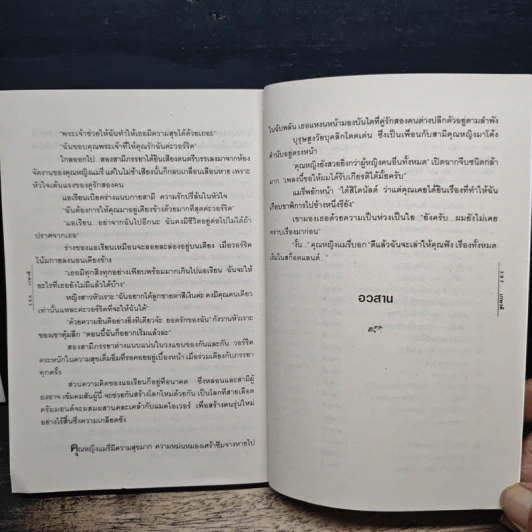 "พระเจ้าช่วยให้ฉันทำให้เธอมีความสุขได้ด้วยเถอะ"
"ฉันขอบคุณพระเจ้าที่ให้คุณรักฉันค่ะวอร์ริค"
ไกลออกไป สองสามีภรรยาได้ยินเสียงดนตรีบรรเลงมาจากห้อง
จัดงานของคุณหญิงแมรี่ แต่ในไม่ช้าเสียงนั้นก็กลบเกลื่อนเลือนหาย เพราะ
หัวใจเต้นแรงของคู่รักสองคน
แอเรียนเบียดร่างแนบกายสามี ความรักปรี่ล้นในหัวใจ
"ฉันต้องการให้คุณมาอยู่เคียงข้างด้วยมากที่สุดค่ะวอร์ริค"
"เธอ อย่าจากฉันไปอีกนะ ฉันคงมีชีวิตอยู่ต่อไปไม่ได้ถ้า
ปราศจากเธอ"
ร่างของแอเรียนเหมือนจะลอยละล่องอยู่บนเตียง เมื่อวอร์ริค
โน้มกายลงนอนเคียงข้าง
"เธอมีทุกสิ่งทุกอย่างเพียบพร้อมมากเกินไปแอเรียน ฉันจะให้
อะไรที่เธอยังไม่มีแล้วได้บ้าง"
หญิงสาวหัวเราะ "ฉันอยากได้ลูกชายตาสีเงินค่ะ คงมีคุณคนเดียว
เท่านั้นแหละค่ะวอร์ริคที่จะให้ฉันได้"
"ด้วยความยินดีอย่างยิ่งทีเดียวจ้ะ ยอดรักของฉัน" กังวานหัวเราะ
ของเขาทุ้มลึก "ตอนนี้ฉันก็อยากเริ่มแล้วล่ะ"
สองสามีภรรยาต่างแนบแน่นในวงแขนของกันและกัน วอร์ริค
ตระหนักในความสุขเต็มอิ่มที่รอคอยอยู่เบื้องหน้า เมื่อร่วมเตียงกับภรรยา
ทุกครั้ง
ส่วนความคิดของแอเรียนก็อยู่ที่อนาคต ซึ่งหล่อนและสามีผู้
องอาจ เข้มคมสันผู้นี้ จะช่วยกันสร้างโลกใหม่ด้วยกัน เป็นโลกที่สายเลือด
ดรัมมอนด์จะผสมผสานคละเคล้ากับแมคไอเวอร์ เพื่อสร้างคนรุ่นใหม่
อย่างไร้สิ้นซึ่งความเกลียดชัง
คุณหญิงแมรี่มีความสุขมาก ความหม่นหมองเศร้าซึมจางหายไป
ในฉับพลัน เธอแหงนหน้ามองบันไดที่คู่รักสองคนต่างปลีกตัวอยู่ตามลำพัง
บุรุษสูงวัยบุคลิกโดดเด่น ซึ่งเป็นเพื่อนกับสามีคุณหญิงมาโค้ง
คำนับอยู่ตรงหน้า
"คุณหญิงยังสวยยิ่งกว่าผู้หญิงคนอื่นทั้งหมด" เปิดฉากจีบชนิดกล้า
มาก "เพลงนี้ขอให้ผมได้รับเกียรติได้มั้ยครับ"
แมรี่พยักหน้า "ได้สิโดนัลด์ ว่าแต่คุณเคยได้ยินเรื่องที่ทำให้ฉัน
เกือบฆ่าพิการไปข้างหนึ่งรึยัง"
เขามองเธอด้วยความเป็นห่วงเป็นใย "ยังครับ...ผมยังไม่เคย
ทราบเรื่องมาก่อน"
"งั้น..." คุณหญิงแมรี่บอก "ดีแล้วฉันจะเล่าให้คุณฟัง เรื่องทั้งหมด
เริ่มในสก็อตแลนด์..."
อวสาน